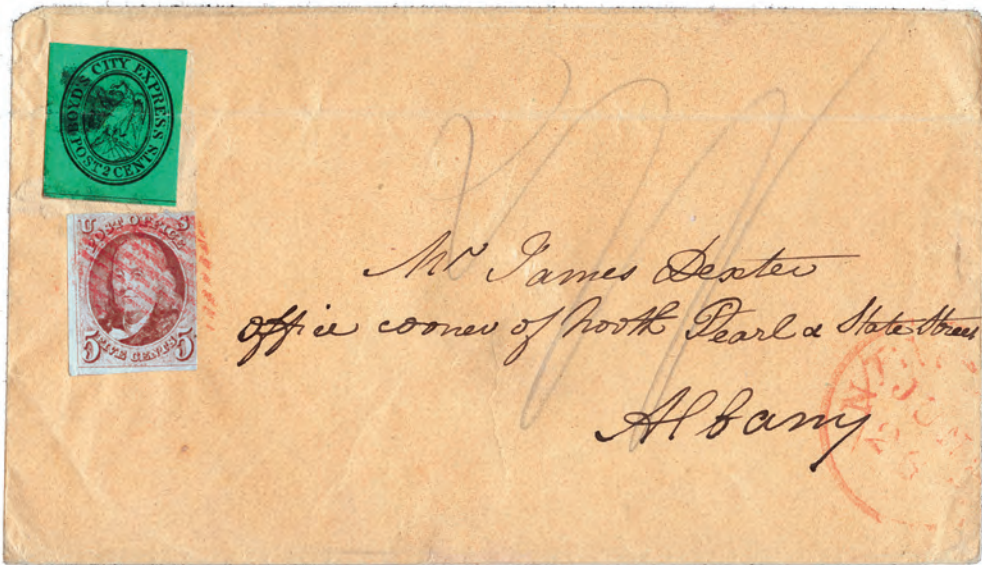 BOYD'S CITY EXPRESS
POST 2 CENTS
U S
POST OFFICE
5 5
FIVE CENTS
Mr James Dexter
office corner of North Pearl & State Street
Albany